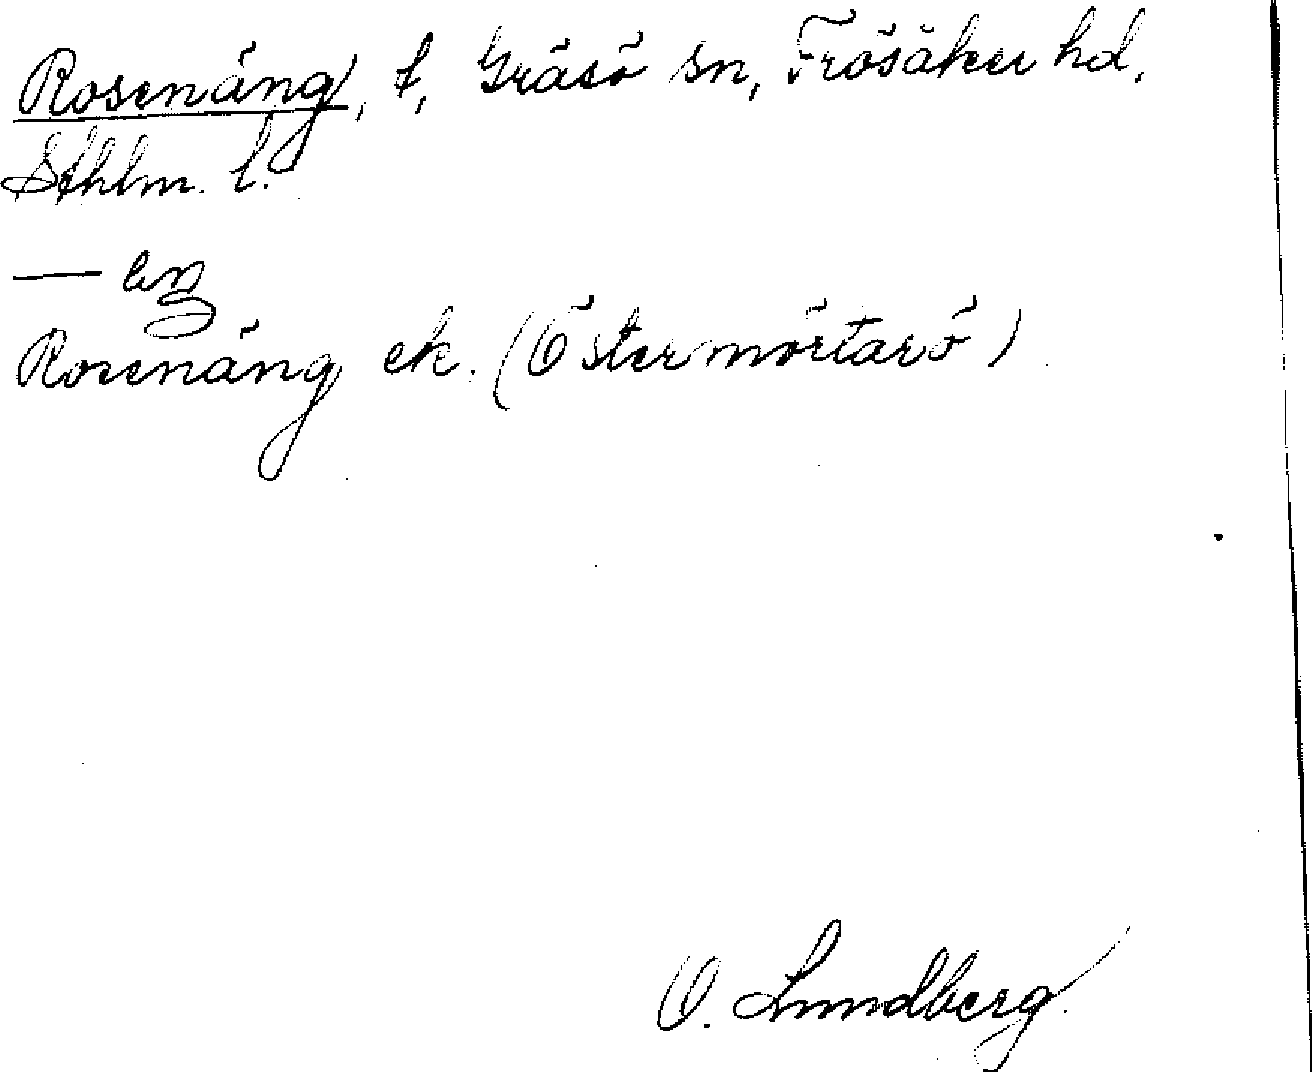 Rosenäng, t, Gräsö sn, Frösåker hd,
Sthlm. l.
— eŋ
Rosenäng ek. (Östermörtarö)
O. Lundberg